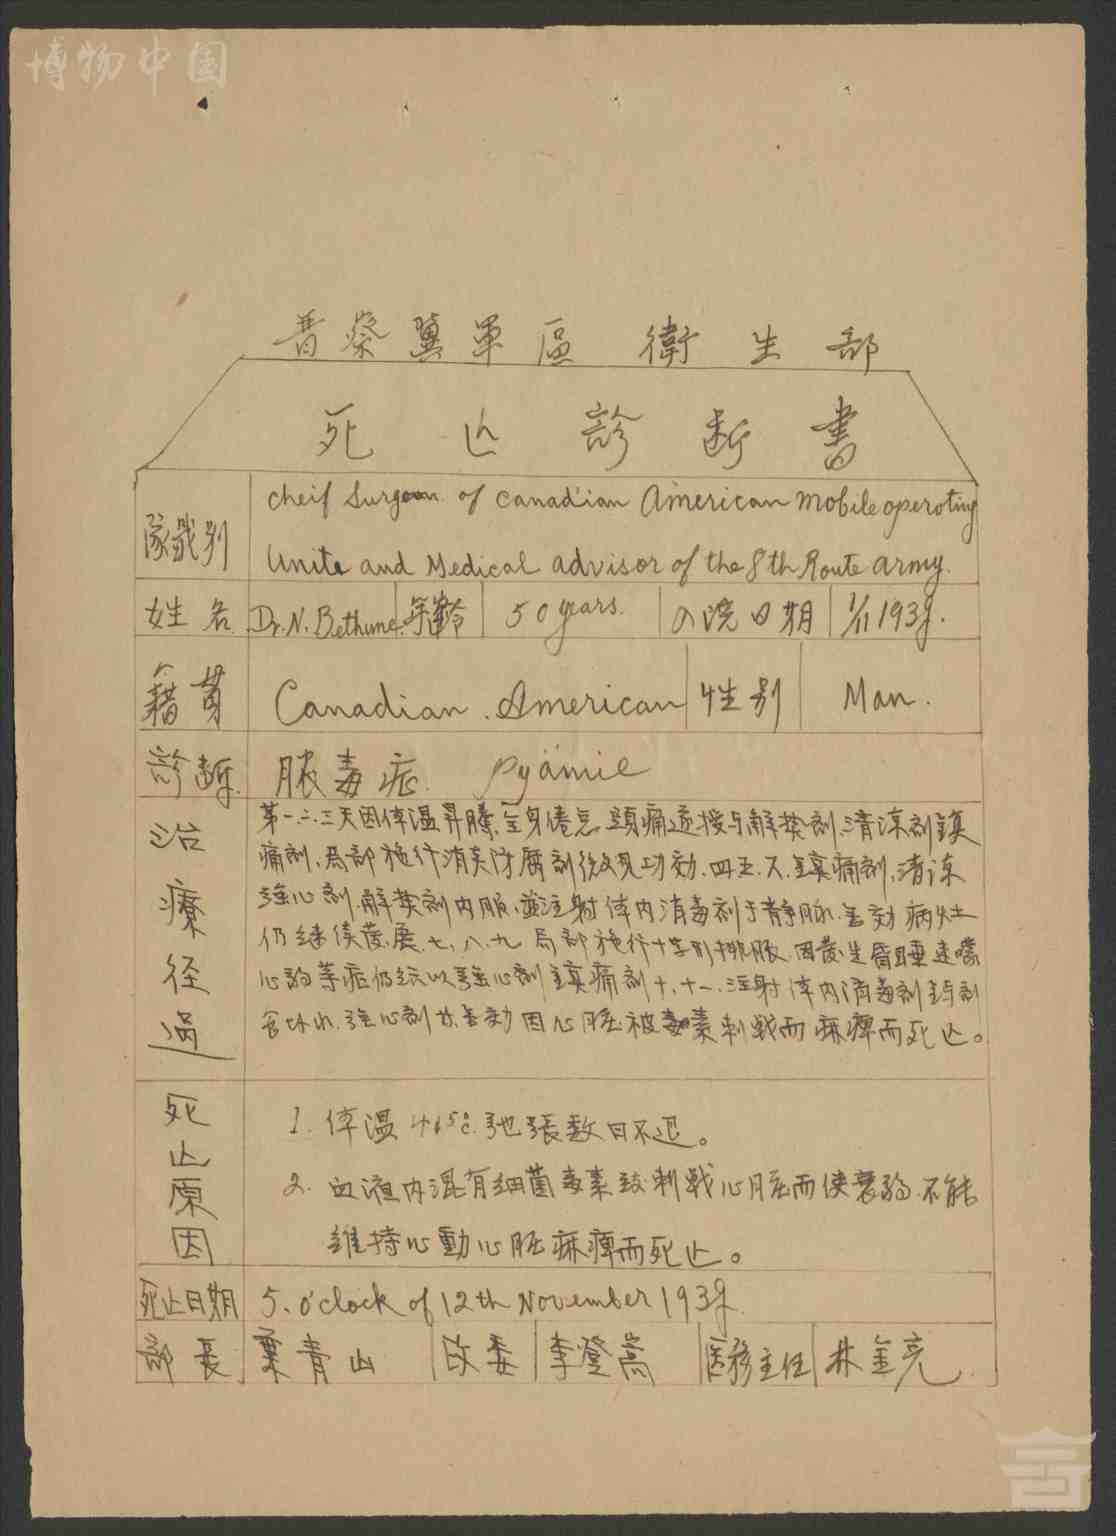 博物中国
晋察冀軍區 衛生部
死亡診断書
隊職别
cheif Surgeon of Canadian American Mobile operating
Unite and Medical advisor of the 8th Route army.
姓名 Dr. N. Bethune. 年齡 50 years. 入院日期 1/11 1939.
籍貫 Canadian. American 性别 Man.
診断 脓毒症 Pyämie
治療径過
第一.二.三天因体温昇騰、全身倦怠、頭痛遂授与解熱剤、清凉剤鎮
痛剤、局部施行消炎防腐剤微見功効.四.五.六.鎮痛剤、清凉
強心剤.解熱剤内服、並注射体内消毒剤于静脉.無効病灶
仍继续蔓展.七.八.九.局部施行十字形排脓.因發生昏睡
心弱等症仍 以強心剤鎮痛剤十.十一.注射体内消毒剤
強心剤 無効因心脏被毒素刺戟而麻痺而死亡。
死亡原因
1. 体温 弛張数日不退。
2. 血液内混有细菌毒素致刺戟心脏而使衰弱.不能
維持心動心脏麻痺而死亡。
死亡日期 5. o'clock of 12th November 1939.
部長 葉青山 政委 李登嵩 医務主任 林金亮